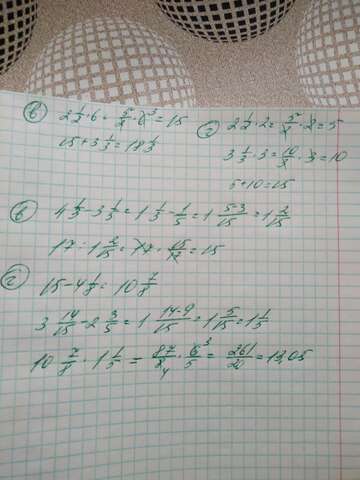 в) 2 1/2 · 6 = 5/2 · 6 ³ = 15
15 + 3 1/3 = 18 1/3
г) 2 1/2 · 2 = 5/2 · 2 = 5
3 1/3 · 3 = 10/3 · 3 = 10
5 + 10 = 15
в) 4 1/3 - 3 1/5 = 1 1/3 - 1/5 = 1 5-3/15 = 1 2/15
17 : 1 2/15 = 17 · 15/17 = 15
г) 15 - 4 1/8 = 10 7/8
3 14/15 - 2 3/5 = 1 14-9/15 = 1 5/15 = 1 1/5
10 7/8 · 1 1/5 = 87/8 ₄ · 6/5 ³ = 261/20 = 13,05